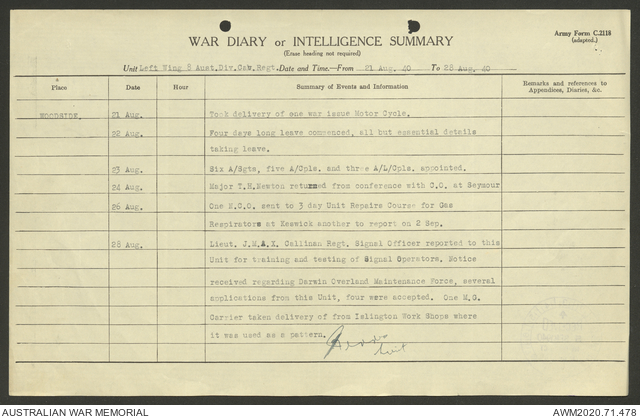 WAR DIARY or INTELLIGENCE SUMMARY
Army Form C.2118
(adapted.)
(Erase heading not required)
Unit Left Wing 8 Aust.Div.Cav.Regt. Date and Time.—From 21 Aug. 40 To 28 Aug. 40
Place Date Hour Summary of Events and Information Remarks and references to Appendices, Diaries, &c.
WOODSIDE. 21 Aug. Took delivery of one war issue Motor Cycle.
22 Aug. Four days long leave commenced, all but essential details
taking leave.
23 Aug. Six A/Sgts, five A/Cpls. and three A/L/Cpls. appointed.
24 Aug. Major T.H.Newton returned from conference with C.O. at Seymour
26 Aug. One N.C.O. sent to 3 day Unit Repairs Course for Gas
Respirators at Keswick another to report on 2 Sep.
28 Aug. Lieut. J.M.&.X. Callinan Regt. Signal Officer reported to this
Unit for training and testing of Signal Operators. Notice
received regarding Darwin Overland Maintenance Force, several
applications from this Unit, four were accepted. One M.G.
Carrier taken delivery of from Islington Work Shops where
it was used as a pattern.
AUSTRALIAN WAR MEMORIAL AWM2020.71.478